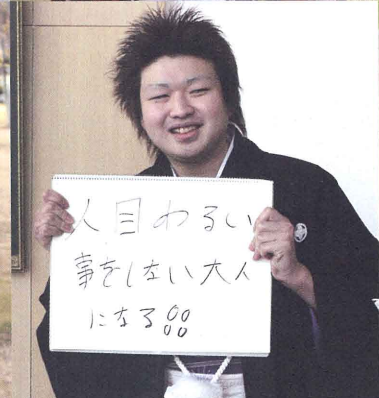 人目わるい
事をしない大人
になる!!